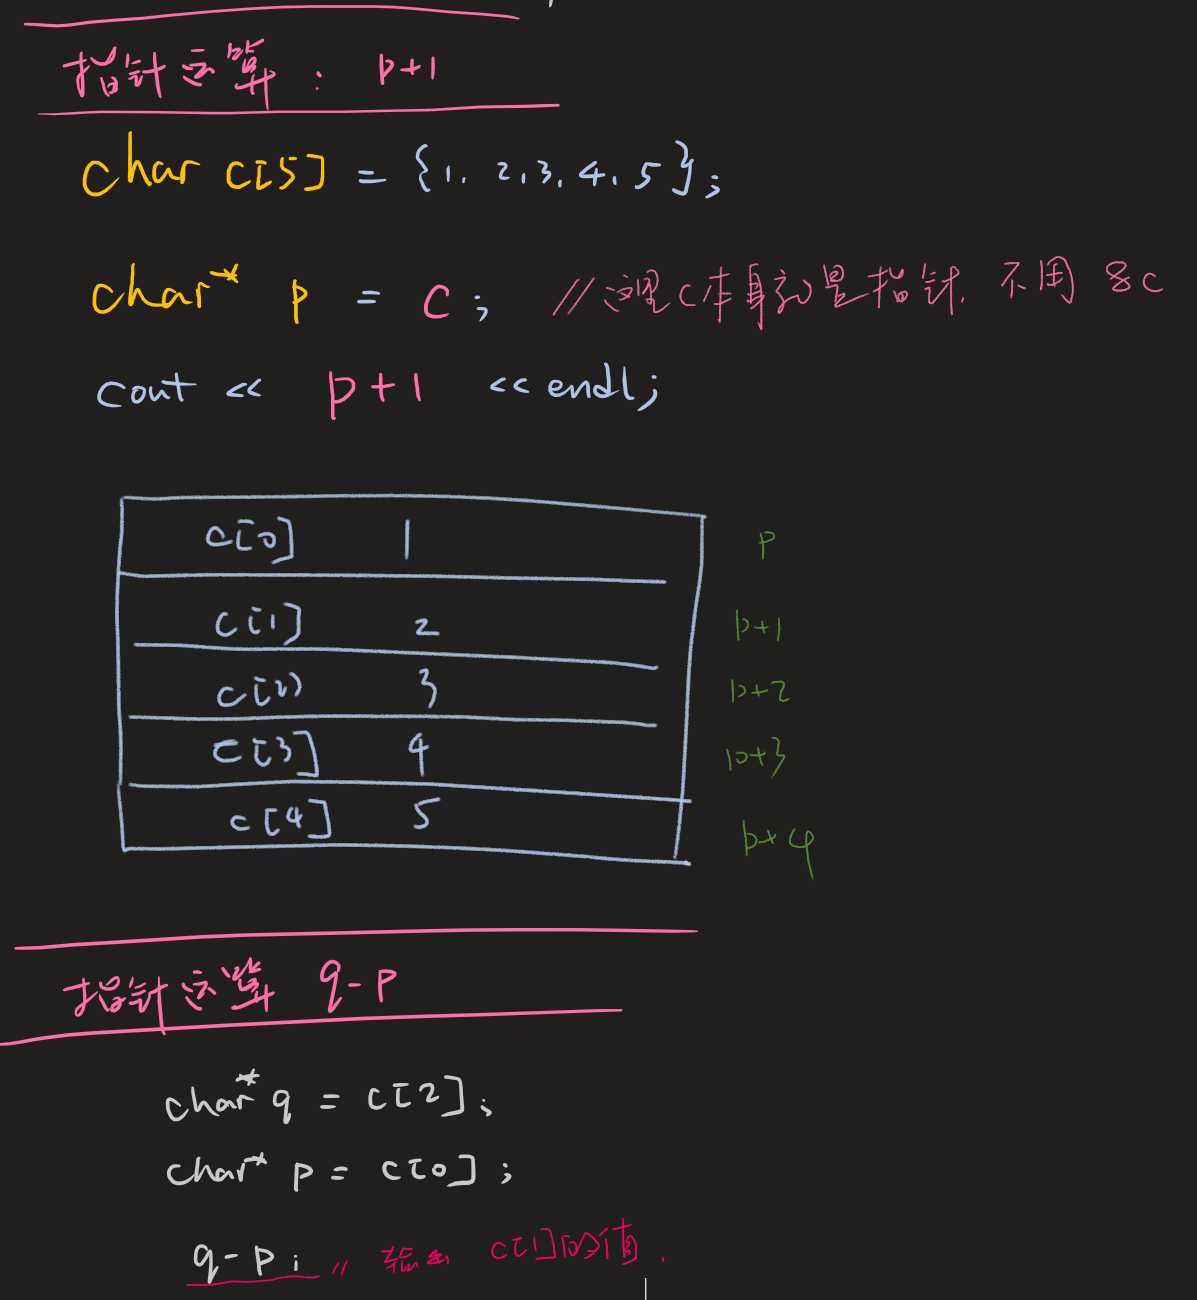 指针运算： p+1
char c[5] = {1, 2, 3, 4, 5};
char* p = c; //这里c本身就是指针, 不用 &c
cout << p+1 << endl;
c[0] 1 p
c[1] 2 p+1
c[2] 3 p+2
c[3] 4 p+3
c[4] 5 p+4
指针运算 q-p
char* q = c[2];
char* p = c[0];
q-p; // 输出 c[1]的值.